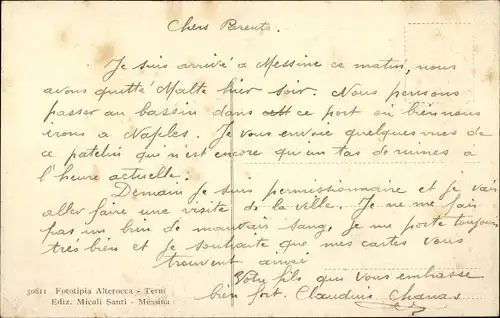 Chers Parents.
Je suis arrivé a Messine ce matin, nous
avons quitté Malte hier soir. Nous pensons
passer au bassin dans ce port ou bien nous
irons a Naples. Je vous envoie quelques vues de
ce patelin qui n'est encore qu'un tas de ruines à
l'heure actuelle.
Demain je suis permissionnaire et je vais
aller faire une visite de la ville. Je ne me fais
pas un brin de mauvais sang, je me porte toujours
très bien et je souhaite que mes cartes vous
trouvent ainsi
Votre fils qui vous embrasse
bien fort. Claudius
30611 Fototipia Alterocca - Terni
Ediz. Micali Santi - Messina